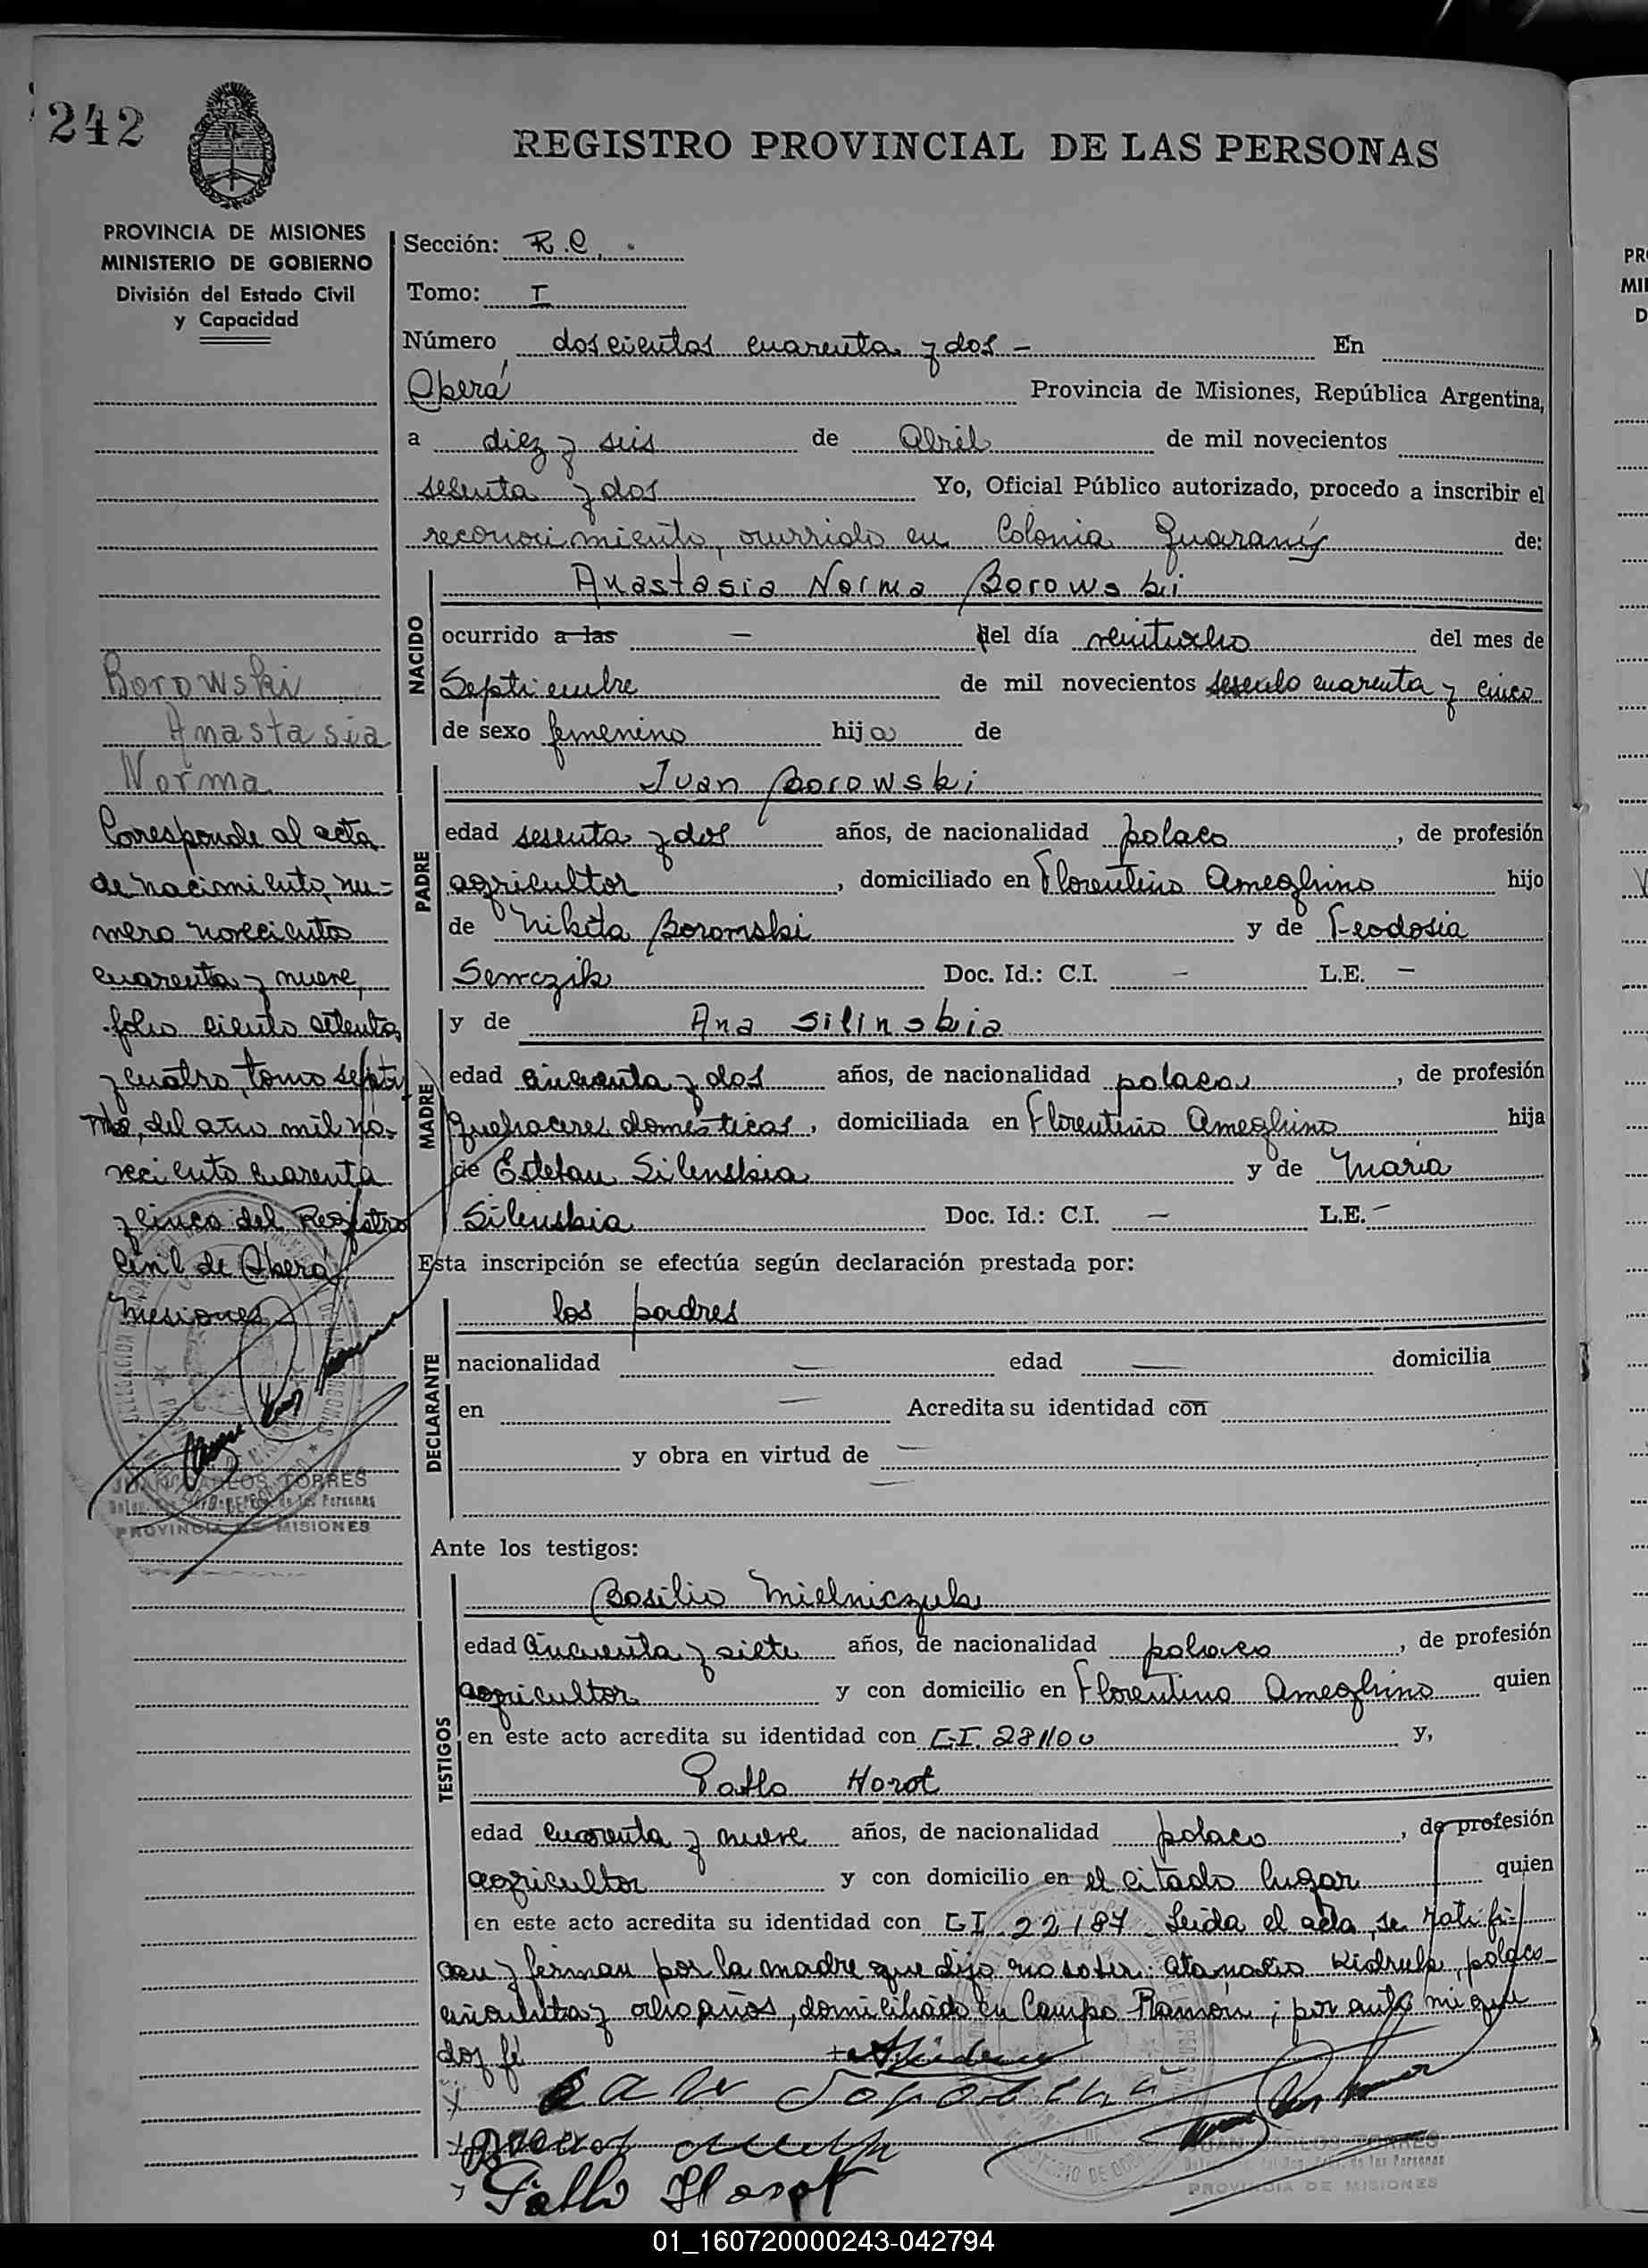 242
REGISTRO PROVINCIAL DE LAS PERSONAS
PROVINCIA DE MISIONES
MINISTERIO DE GOBIERNO
División del Estado Civil
y Capacidad
Sección: R.C.
Tomo: I
Número doscientos cuarenta y dos - En
Oberá Provincia de Misiones, República Argentina,
a diez y seis de Abril de mil novecientos
sesenta y dos Yo, Oficial Público autorizado, procedo a inscribir el
reconocimiento, ocurrido en Colonia Guaraní de:
NACIDO
Anastasia Norma Borowski
ocurrido a las - del día veintiocho del mes de
Septiembre de mil novecientos cuarenta y cinco
de sexo femenino hija de
Borowski
Anastasia
Norma
Corresponde al acta
de nacimiento, nu-
mero novecientos
cuarenta y nueve,
folio ciento setenta
y cuatro, tomo septi
mo, del año mil no-
veciento cuarenta
y cinco del Registro
Civil de Oberá
Misiones
JUAN CARLOS TORRES
PROVINCIA DE MISIONES
PADRE
Juan Borowski
edad sesenta y dos años, de nacionalidad polaco, de profesión
agricultor, domiciliado en Florentino Ameghino hijo
de Nikita Boromski y de Feodosia
Semczik Doc. Id.: C.I. - L.E. -
MADRE
y de Ana Silinskia
edad cincuenta y dos años, de nacionalidad polaca, de profesión
quehaceres domésticos, domiciliada en Florentino Ameghino hija
de Esteban Silenskia y de María
Silenskia Doc. Id.: C.I. - L.E. -
Esta inscripción se efectúa según declaración prestada por:
DECLARANTE
los padres
nacionalidad — edad — domicilia
en — Acredita su identidad con
y obra en virtud de —
Ante los testigos:
TESTIGOS
Basilio Mielniczuk
edad cincuenta y siete años, de nacionalidad polaco, de profesión
agricultor y con domicilio en Florentino Ameghino quien
en este acto acredita su identidad con C.I. 281100 y,
Pablo Horot
edad cuarenta y nueve años, de nacionalidad polaco, de profesión
agricultor y con domicilio en el citado lugar quien
en este acto acredita su identidad con C.I. 22187. Leida el acta, se ratifi-
can y firman por la madre que dijo no saber: Atanacio Kidruk, polaco
cincuenta y ocho años, domiciliado en Campo Ramón; por ante mi que
doy fé
Pablo Horot
JUAN CARLOS TORRES
PROVINCIA DE MISIONES
01_160720000243-042794